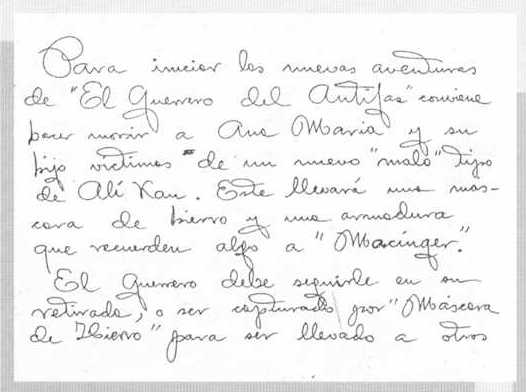 Para iniciar las nuevas aventuras
de "El Guerrero del Antifaz" conviene
hacer morir a Ana María y su
hijo víctimas de un nuevo "malo" tipo
de Alí Kan. Este llevará una mas-
cara de hierro y una armadura
que recuerden algo a "Macinger."
El Guerrero debe seguirle en su
retirada, o ser capturado por "Máscara
de Hierro" para ser llevado a otros